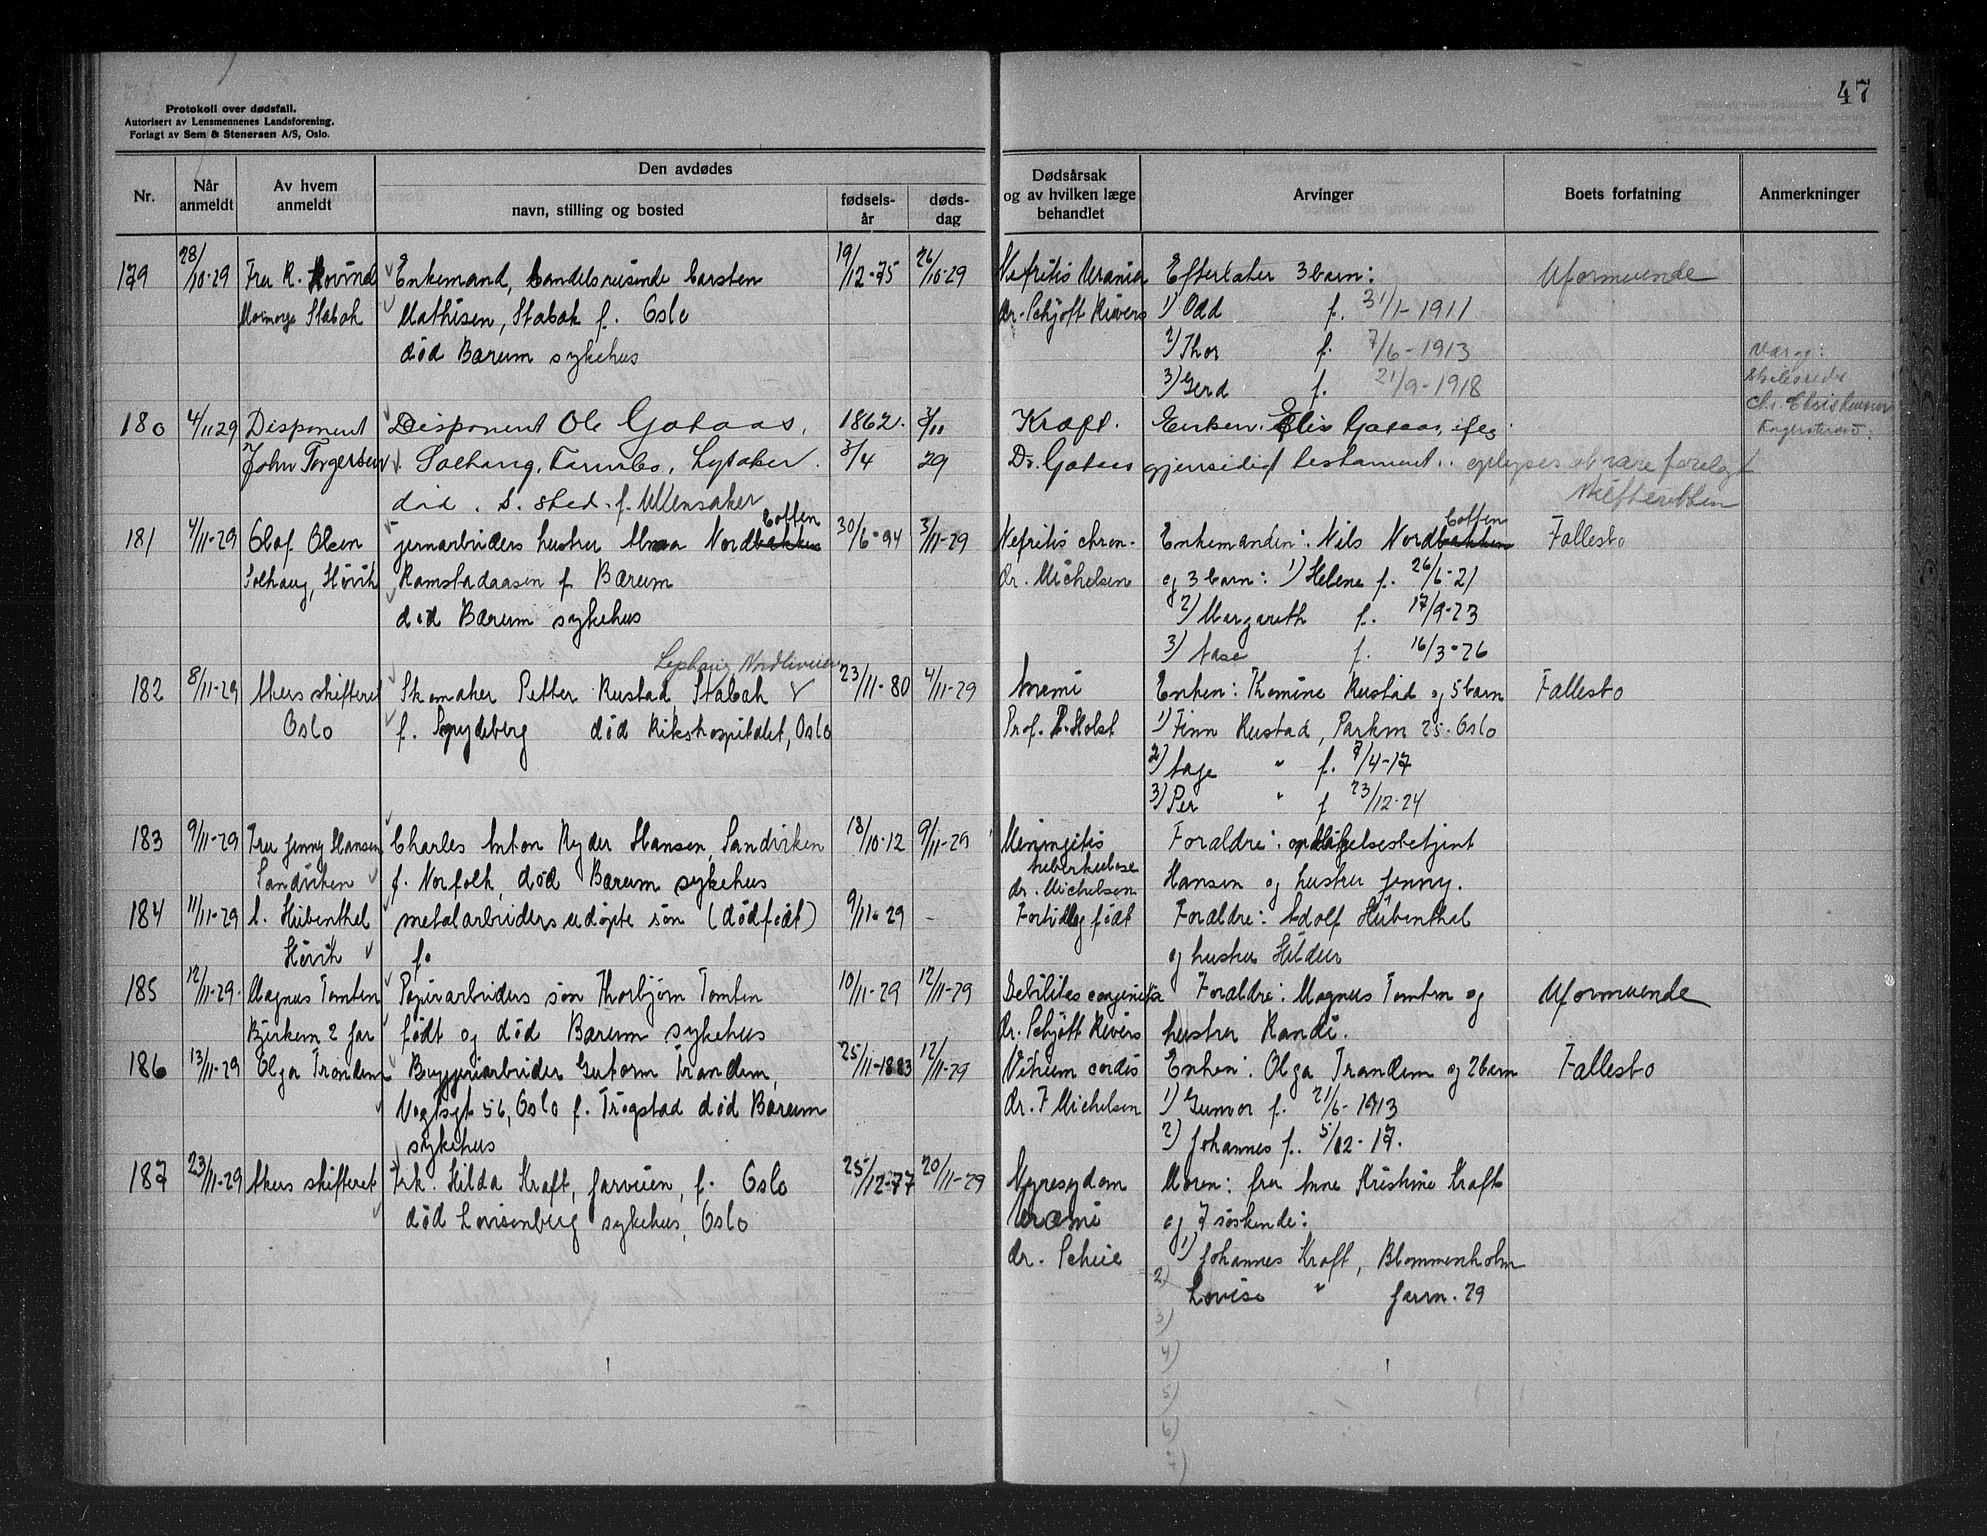 47
Protokoll over dødsfall.
Autorisert av Lensmennenes Landsforening.
Forlagt av Sem & Stenersen A/S, Oslo.
Nr.
Når anmeldt
Av hvem anmeldt
Den avdødes
navn, stilling og bosted
fødsels-år
døds-dag
Dødsårsak og av hvilken læge behandlet
Arvinger
Boets forfatning
Anmerkninger
179 28/10-29 Fru R. Hovind Enkemand, handelsreisende Carsten 19/12-75 26/10-29 Nefritis Uræmia Efterlater 3 barn: Uformuende
Stabæk Mathisen, Stabæk f. Oslo dr. Schjøtt Rivers 1) Odd f. 31/1-1911
død Bærum sykehus 2) Thor f. 7/6-1913
3) Gerd f. 21/9-1918
180 4/11 29 Disponent Disponent Ole Gotaas, 1862. 3/11 Kræft. Enken
John Torgersen Solhaug, Lysaker. 3/4 29 Dr. Gotaas gjensidig testament.
død s. sted. f. Ullensaker skifteretten
181 4/11-29 Olaf Olsen jernarbeiders hustru Anna Nordbakken botten 30/6-94 3/11-29 Nefritis chron. Enkemanden: Nils Nordbakken botten Fallesbo
Solhaug, Høvik Ramstadaasen f. Bærum dr. Michelsen og 3 barn: 1) Helene f. 26/6-21
død Bærum sykehus 2) Margareth f. 17/9-23
3) Aase f. 16/3-26
182 8/11-29 Akers skifteret Skomaker Petter Rustad, Stabæk 23/11-80 4/11-29 Anæmi Enken: Thomine Rustad og 5 barn Fallesbo
Oslo f. Spydeberg død Rikshospitalet, Oslo Prof. P. Holst 1) Finn Rustad, Parkvn 25. Oslo
2) Aage " f. 7/4-17
3) Per " f 23/12-24
183 9/11-29 Fru Jenny Hansen Charles Anton Ryder Hansen, Sandviken 18/10-12 9/11-29 Meningitis Forældre: opdagelsesbetjent
Sandviken f. Norfolk, død Bærum sykehus tuberkulose dr. Michelsen Hansen og hustru Jenny.
184 11/11-29 A. Hübenthal metalarbeiders udøpte søn (dødfødt) 9/11-29 - Fortidlig født Forældre: Adolf Hübenthal
Høvik f. og hustru Hildur
185 12/11-29. Magnus Tomten Papirarbeiders søn Thorbjørn Tomten 10/11-29 12/11-29 Debilitas congenita Forældre: Magnus Tomten og Uformuende
Bjerkem 2 Jar født og død Bærum sykehus dr. Schjøtt Rivers hustru Randi.
186 13/11-29 Olga Trandem Bryggeriarbeider Gutorm Trandem, 25/11-1883 12/11-29 Vitium cordis Enken: Olga Trandem og 2 barn Fallesbo
Vogtsgt 56, Oslo f. Trøgstad død Bærum dr. F Michelsen 1) Gunvor f. 21/6-1913
sykehus 2) Johannes f. 5/12-17.
187 23/11-29 Akers skifteret Frk. Hilda Kraft, Jarveien, f. Oslo 25/12-77 20/11-29 Nyresydom Moren: fru Anne Kristine Kraft
død Lovisenberg sykehus, Oslo Uræmi og 7 søskende:
dr. Scheie 1) Johannes Kraft, Blommenholm
2) Lovise " Jarvn. 29
3)
4)
5)
6)
7)